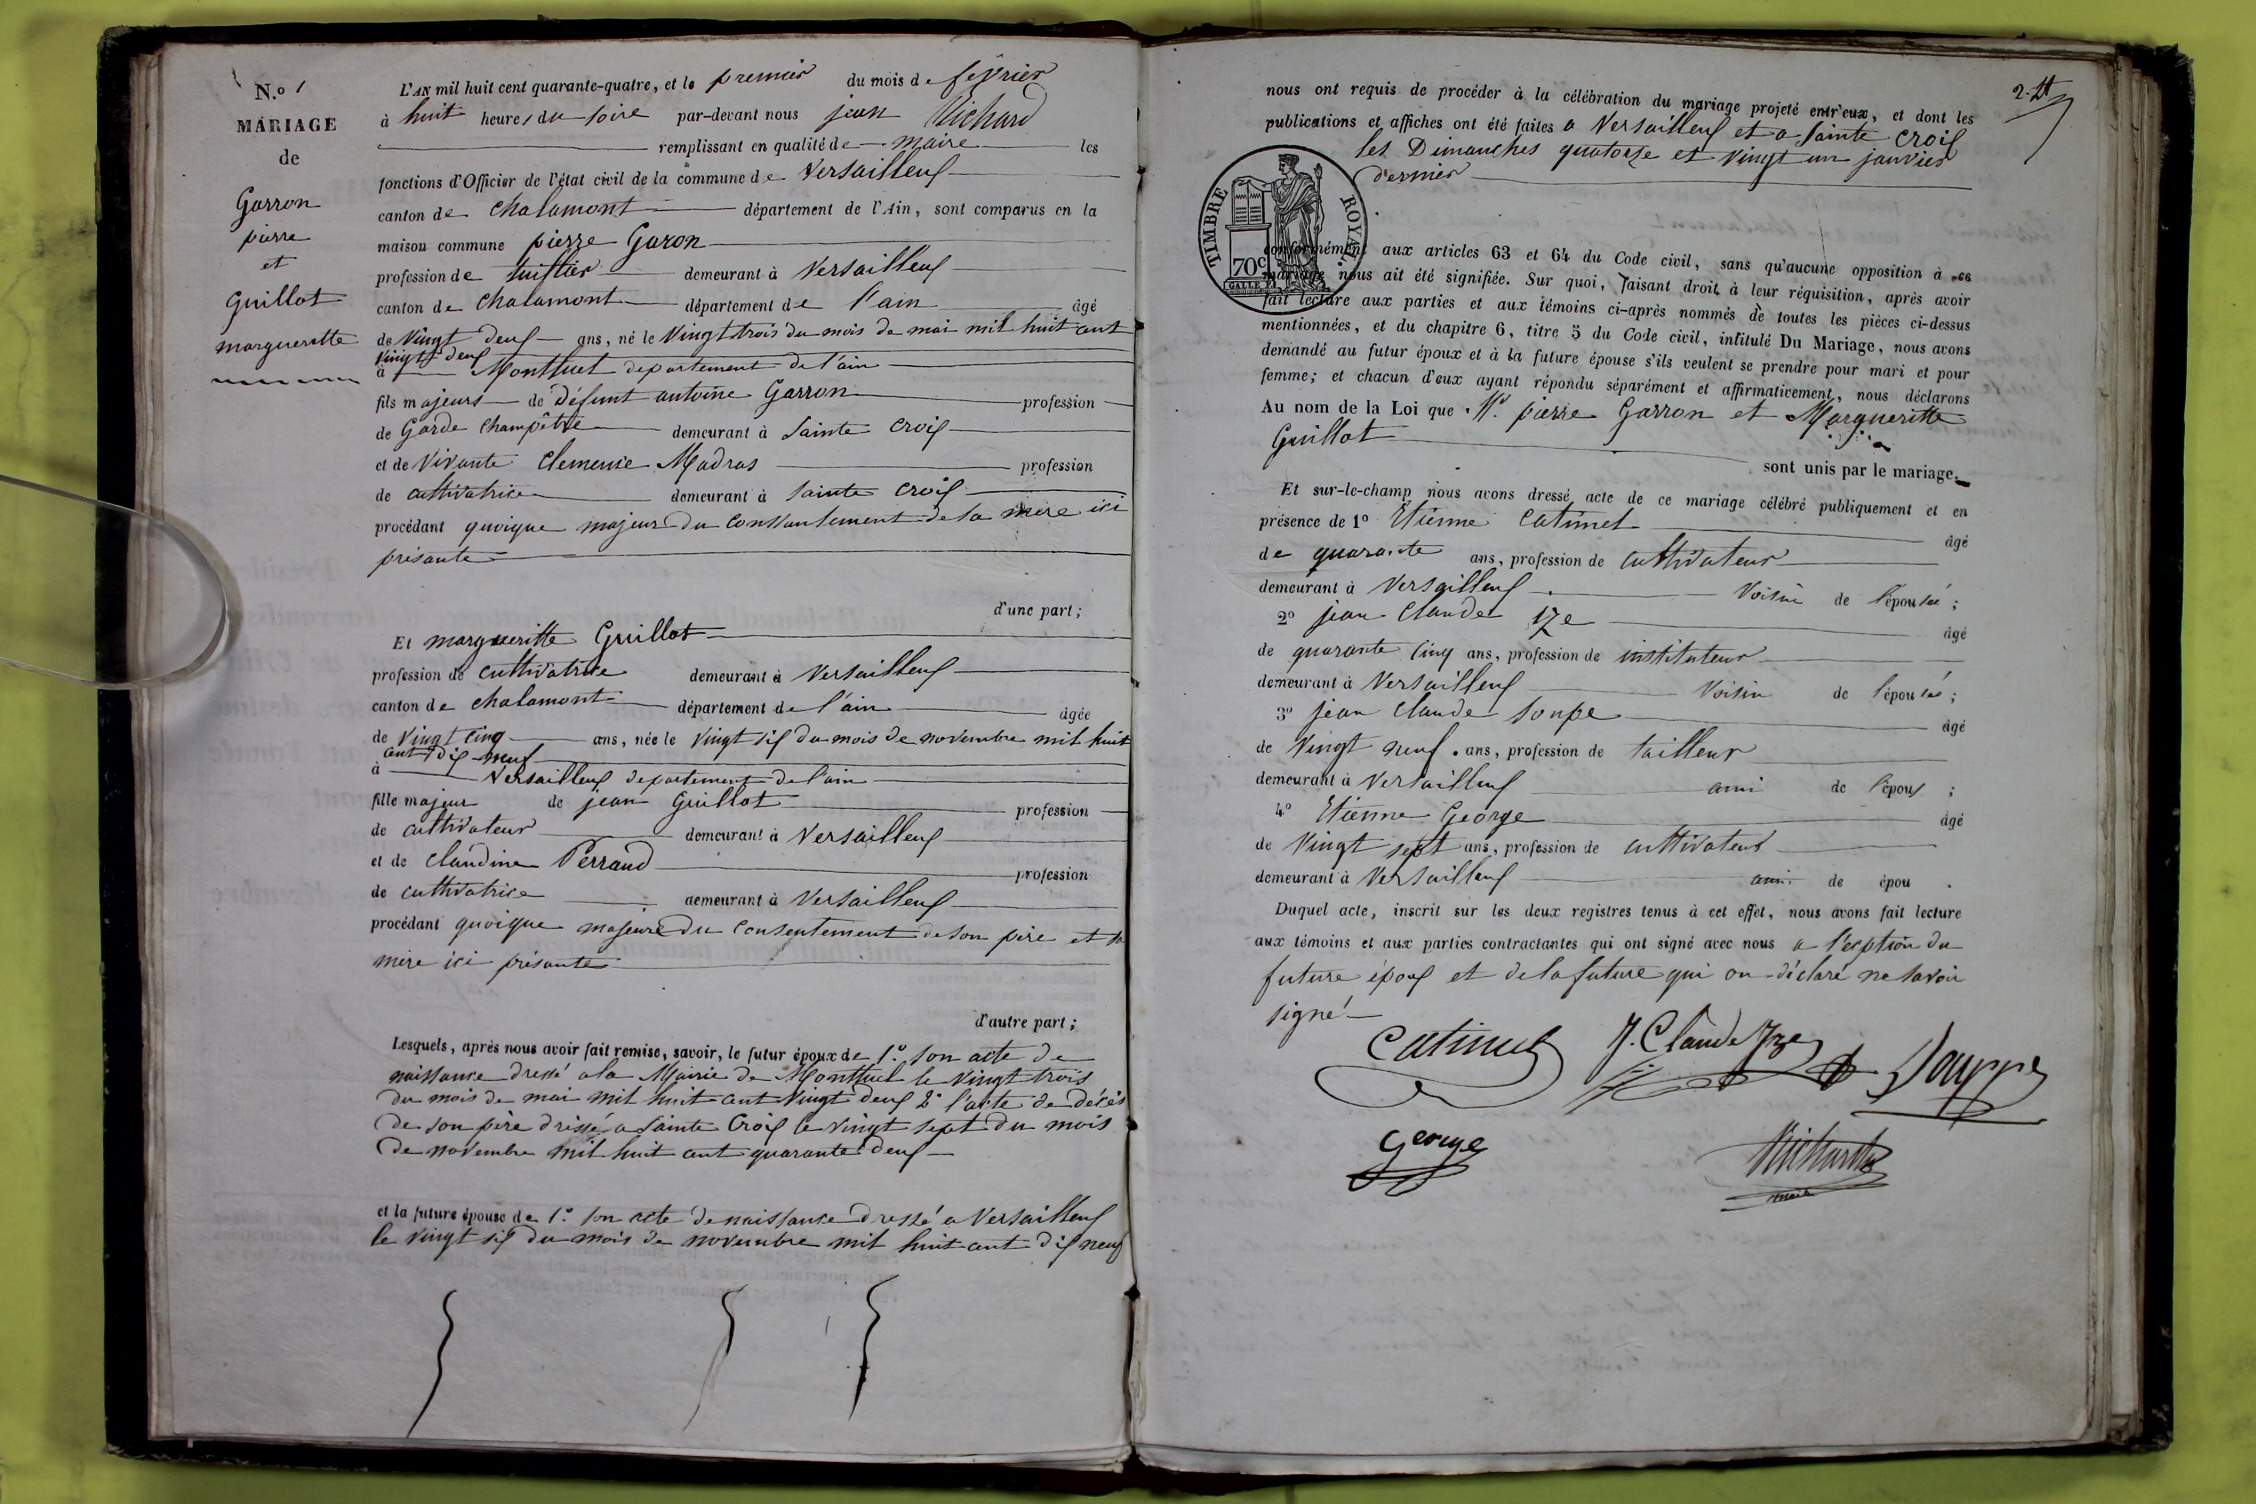 N.o 1
MARIAGE
de
Garron
pierre
et
Guillot
margueritte
L'AN mil huit cent quarante-quatre, et le premier du mois de février
à huit heures du soire par-devant nous jean Richard
remplissant en qualité de maire les
fonctions d'Officier de l'état civil de la commune de Versailleux
canton de chalamont département de l'Ain, sont comparus en la
maison commune pierre Garon
profession de tuillier demeurant à Versailleux
canton de chalamont département de l'ain âgé
de vingt deux ans, né le vingt trois du mois de mai mil huit cent
vingt deux
à Montluel departement de l'ain
fils majeurs de défunt antoine Garron profession
de Garde champêtre demeurant à Sainte Croix
et de vivante clemence Madras profession
de cultivatrice demeurant à Sainte Croix
procédant quoique majeur du consantement de sa mère ici
présante
d'une part;
Et margueritte Guillot
profession de cultivatrice demeurant à Versailleux
canton de chalamont département de l'ain âgée
de vingt cinq ans, née le vingt six du mois de novembre mil huit
cent dix neuf
à Versailleux departement de l'ain
fille majeur de jean Guillot profession
de cultivateur demeurant à Versailleux
et de claudine Perraud profession
de cultivatrice demeurant à Versailleux
procédant quoique majeure du consentement de son père et sa
mère ici présante
d'autre part;
Lesquels, après nous avoir fait remise, savoir, le futur époux de 1.o son acte de
naissance dressé a la Mairie de Montluel le vingt trois
du mois de mai mil huit cent vingt deux 2.o l'acte de décès
de son père dressé a Sainte Croix le vingt sept du mois
de novembre mil huit cent quarante deux
et la future épouse de 1.o son acte de naissance dressé a Versailleux
le vingt six du mois de novembre mil huit cent dix neuf
2.
nous ont requis de procéder à la célébration du mariage projeté entr'eux, et dont les
publications et affiches ont été faites a Versailleux et a Sainte Croix
les Dimanches quatorze et vingt un janvier
dernier
TIMBRE ROYAL
70c
conformément aux articles 63 et 64 du Code civil, sans qu'aucune opposition à ce
mariage nous ait été signifiée. Sur quoi, faisant droit à leur réquisition, après avoir
fait lecture aux parties et aux témoins ci-après nommés de toutes les pièces ci-dessus
mentionnées, et du chapitre 6, titre 5 du Code civil, intitulé Du Mariage, nous avons
demandé au futur époux et à la future épouse s'ils veulent se prendre pour mari et pour
femme; et chacun d'eux ayant répondu séparément et affirmativement, nous déclarons
Au nom de la Loi que Mr. pierre Garron et Margueritte
Guillot
sont unis par le mariage.
Et sur-le-champ nous avons dressé acte de ce mariage célébré publiquement et en
présence de 1o Etienne catimel âgé
de quarante ans, profession de cultivateur
demeurant à Versailleux voisin de l'épousée;
2o jean claude ize âgé
de quarante cinq ans, profession de instituteur
demeurant à Versailleux voisin de l'épousée;
3o jean claude soupe âgé
de vingt neuf ans, profession de tailleur
demeurant à Versailleux ami de l'époux;
4o Etienne George âgé
de vingt sept ans, profession de cultivateur
demeurant à Versailleux ami de épou.
Duquel acte, inscrit sur les deux registres tenus à cet effet, nous avons fait lecture
aux témoins et aux parties contractantes qui ont signé avec nous a l'exption du
future époux et de la future qui on déclaré ne savoir
signé
Catimel J. Claude Ize Souppe
George Richard
maire